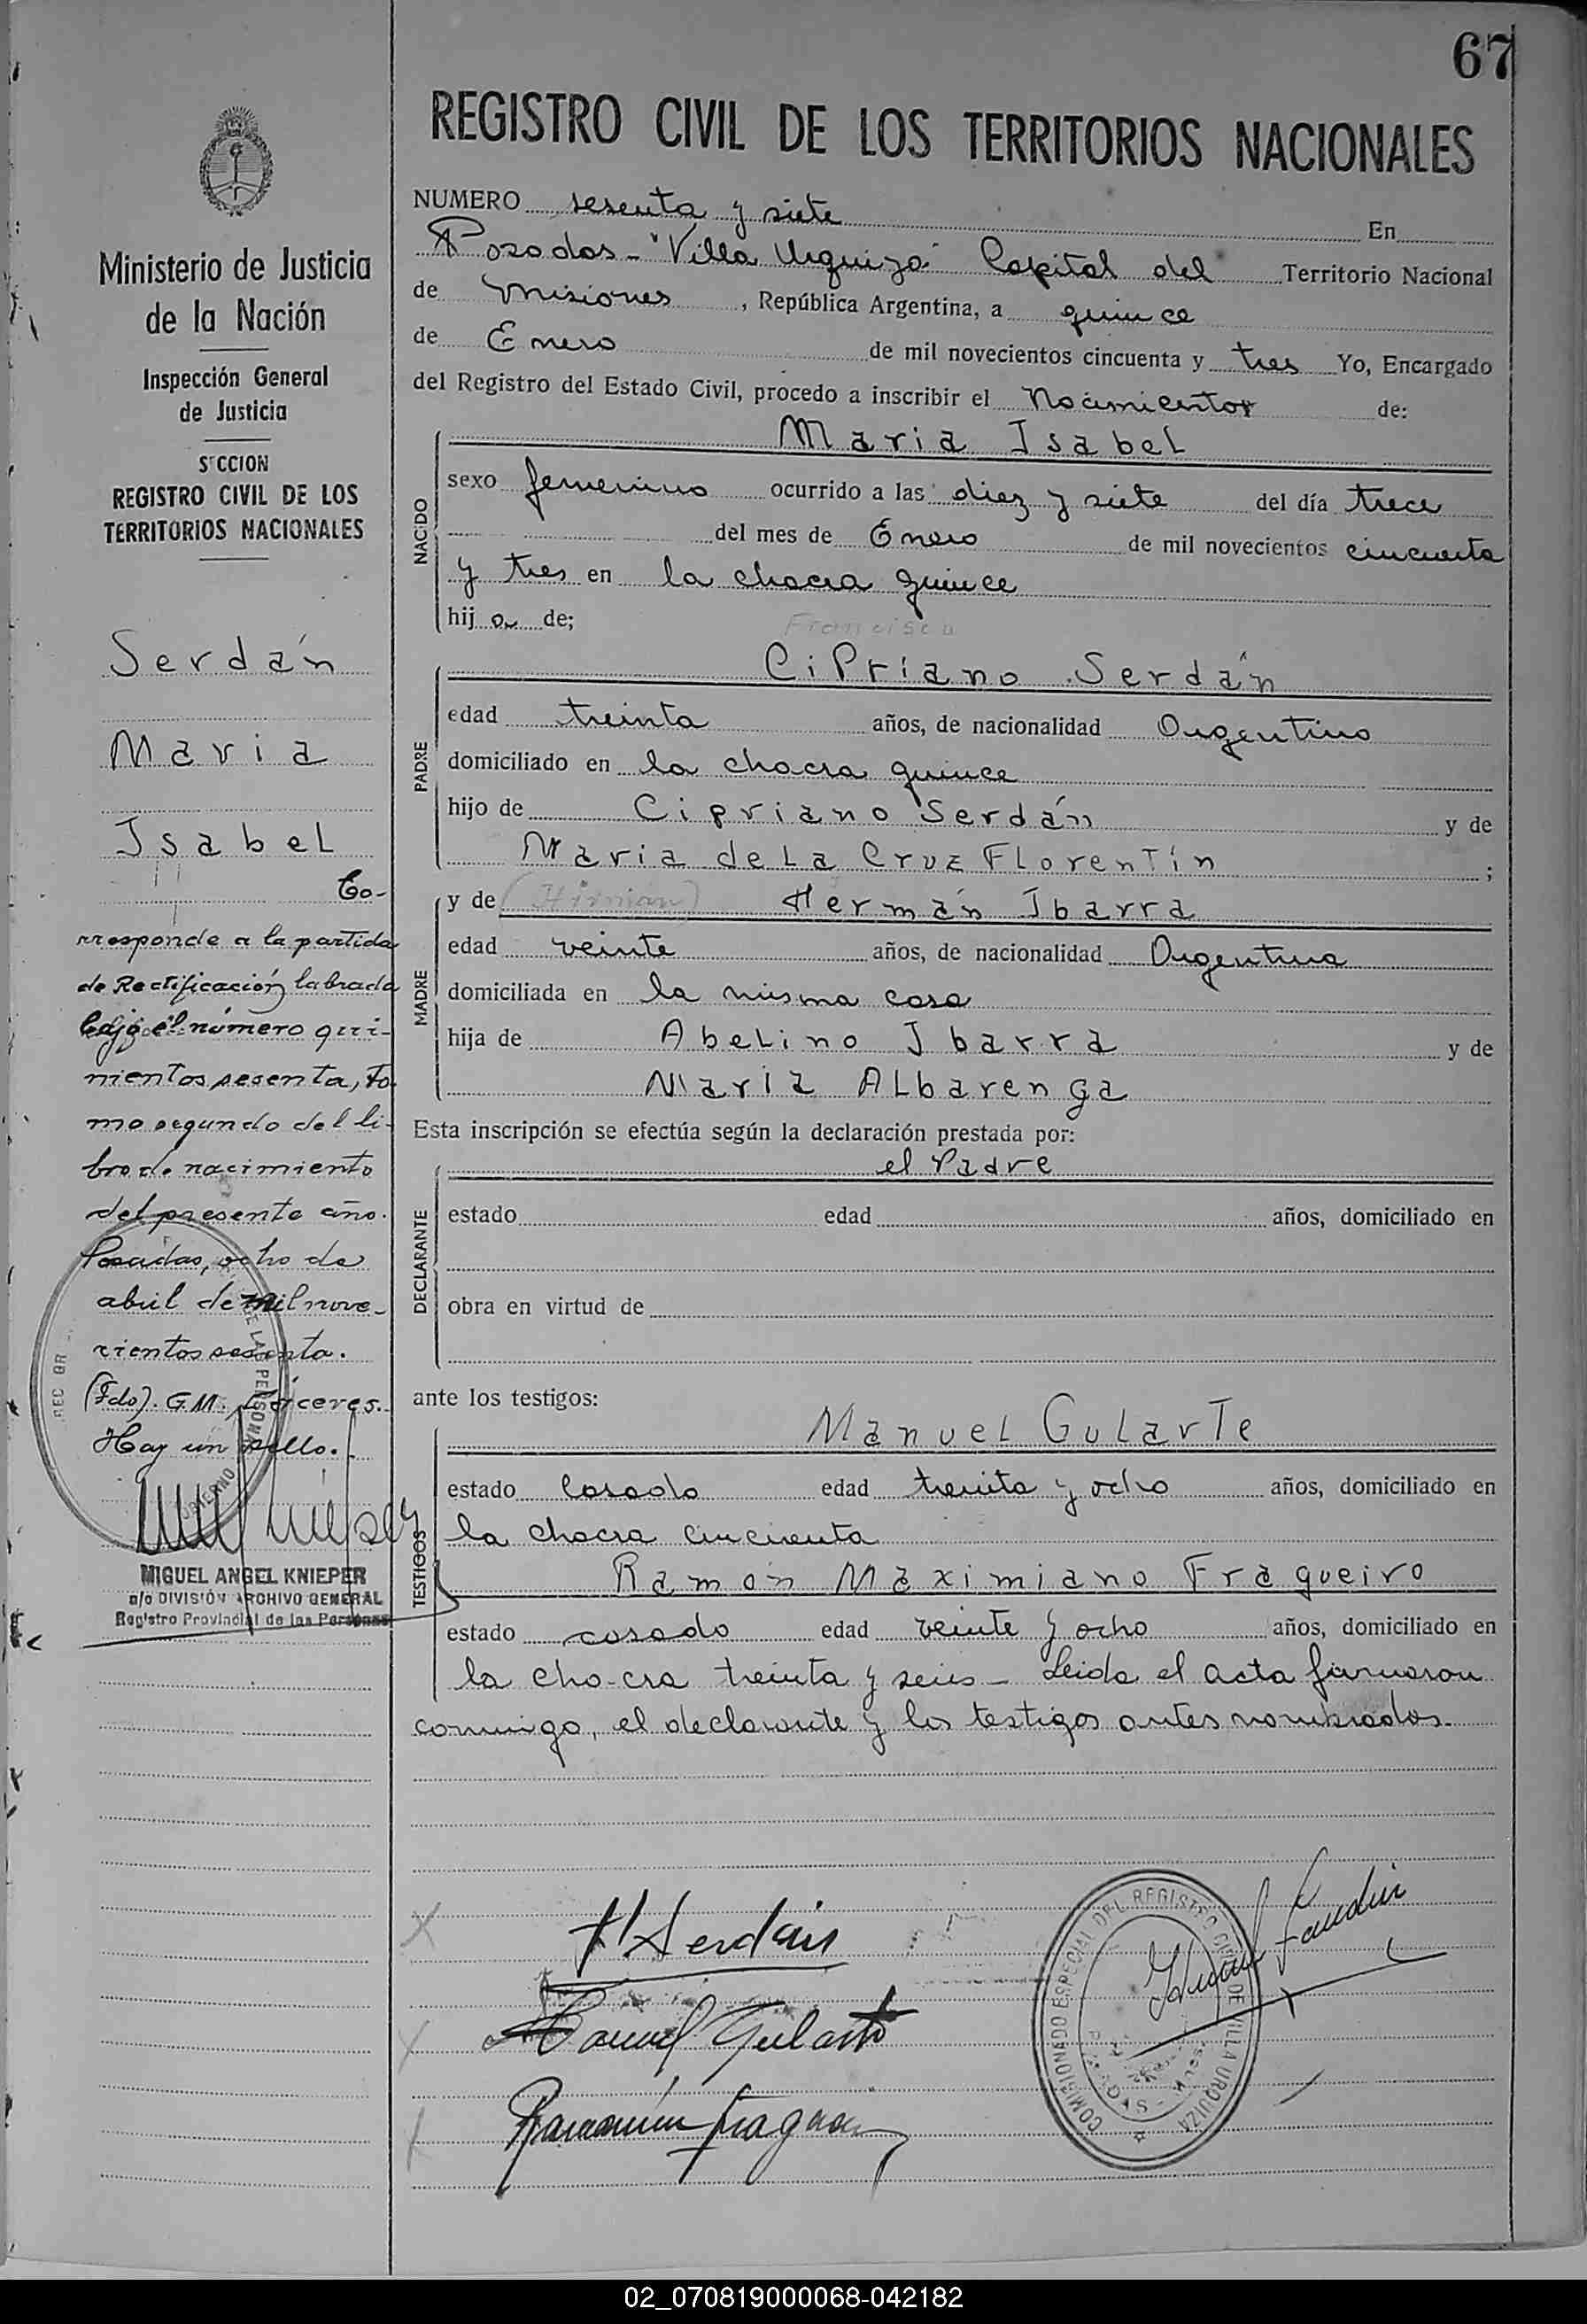 67
REGISTRO CIVIL DE LOS TERRITORIOS NACIONALES
NUMERO sesenta y siete En
Posadas - "Villa Urquiza" Capital del Territorio Nacional
de Misiones, República Argentina, a quince
de Enero de mil novecientos cincuenta y tres Yo, Encargado
del Registro del Estado Civil, procedo a inscribir el Nacimiento de:
NACIDO
Maria Isabel
sexo femenino ocurrido a las diez y siete del día trece
del mes de Enero de mil novecientos cincuenta
y tres en la chacra quince
hij a de;
Francisco
PADRE
Cipriano Serdán
edad treinta años, de nacionalidad Argentino
domiciliado en la chacra quince
hijo de Cipriano Serdán y de
Maria de La Cruz Florentín ;
MADRE
y de (Hirmán) Hermán Ibarra
edad veinte años, de nacionalidad Argentina
domiciliada en la misma casa
hija de Abelino Ibarra y de
Maria Albarenga
Esta inscripción se efectúa según la declaración prestada por:
DECLARANTE
el Padre
estado edad años, domiciliado en
obra en virtud de
ante los testigos:
TESTIGOS
Manuel Gularte
estado Casado edad treinta y ocho años, domiciliado en
la chacra cincuenta
Ramón Maximiano Fragueiro
estado casado edad veinte y ocho años, domiciliado en
la cha-cra treinta y seis - Leida el acta firmaron
conmigo, el declarante y los testigos antes nombrados.
Serdán
Manuel Gularte
Ramón
COMISIONADO ESPECIAL DEL REGISTRO CIVIL DE VILLA URQUIZA
Ministerio de Justicia
de la Nación
Inspección General
de Justicia
SECCION
REGISTRO CIVIL DE LOS
TERRITORIOS NACIONALES
Serdán
Maria
Isabel
Co-
rresponde a la partida
de Rectificación labrada
bajo el número qui-
nientos sesenta, to-
mo segundo del li-
bro de nacimiento
del presente año.
Posadas, ocho de
abril de mil nove-
cientos sesenta.
(Fdo). G.M. Cáceres.
Hay un sello.
MIGUEL ANGEL KNIEPER
a/c DIVISIÓN ARCHIVO GENERAL
Registro Provincial de las Personas
02_070819000068-042182